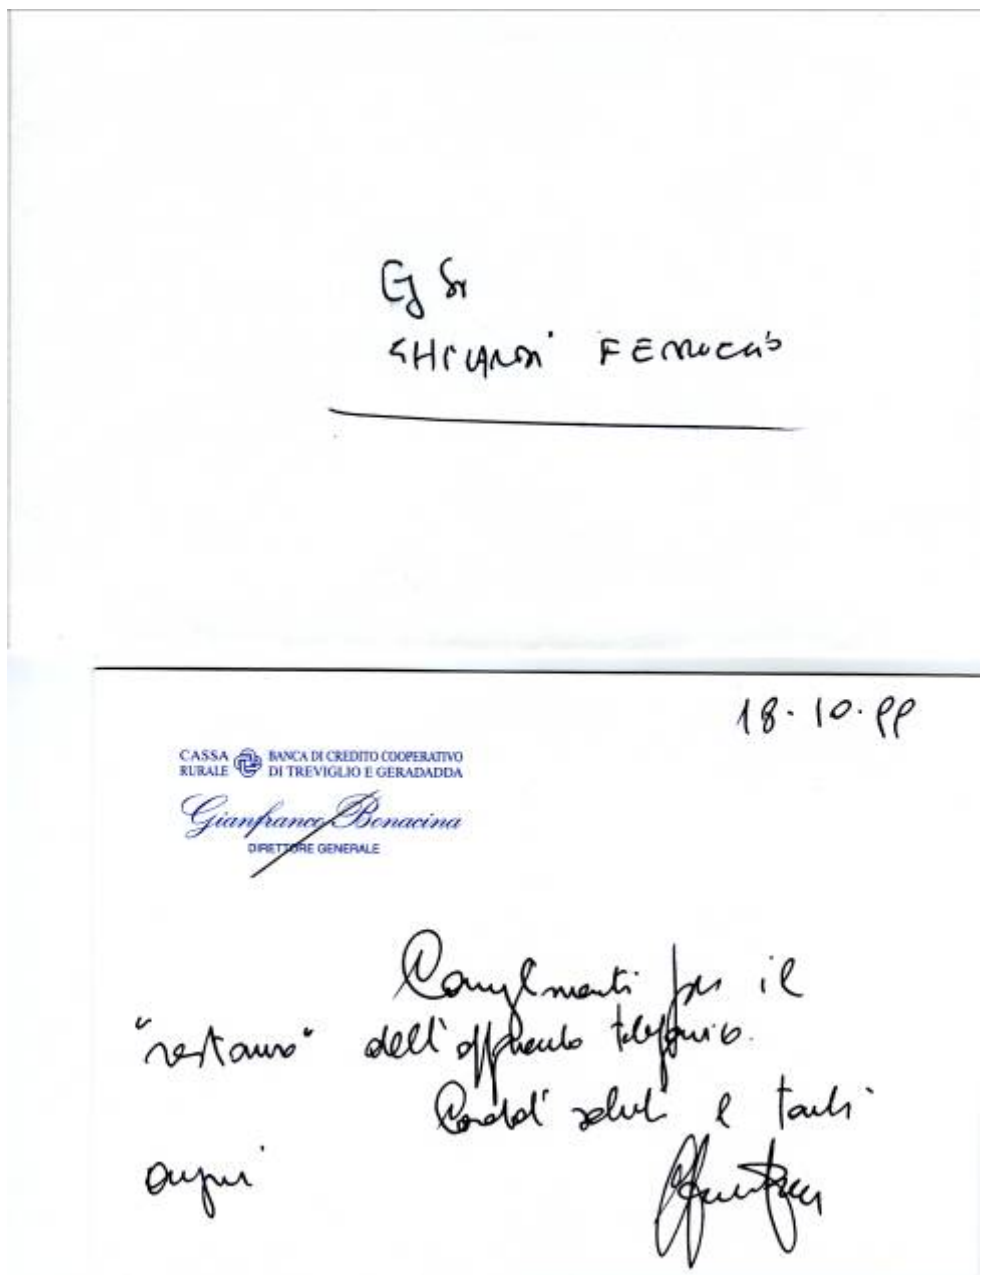 Eg Sr
GHILARDI FERRUCCIO
18.10.99
CASSA RURALE BANCA DI CREDITO COOPERATIVO DI TREVIGLIO E GERADADDA
Gianfranco Bonacina
DIRETTORE GENERALE
Complimenti per il
"restauro" dell'apparecchio telefonico.
Cordiali saluti e tanti
auguri